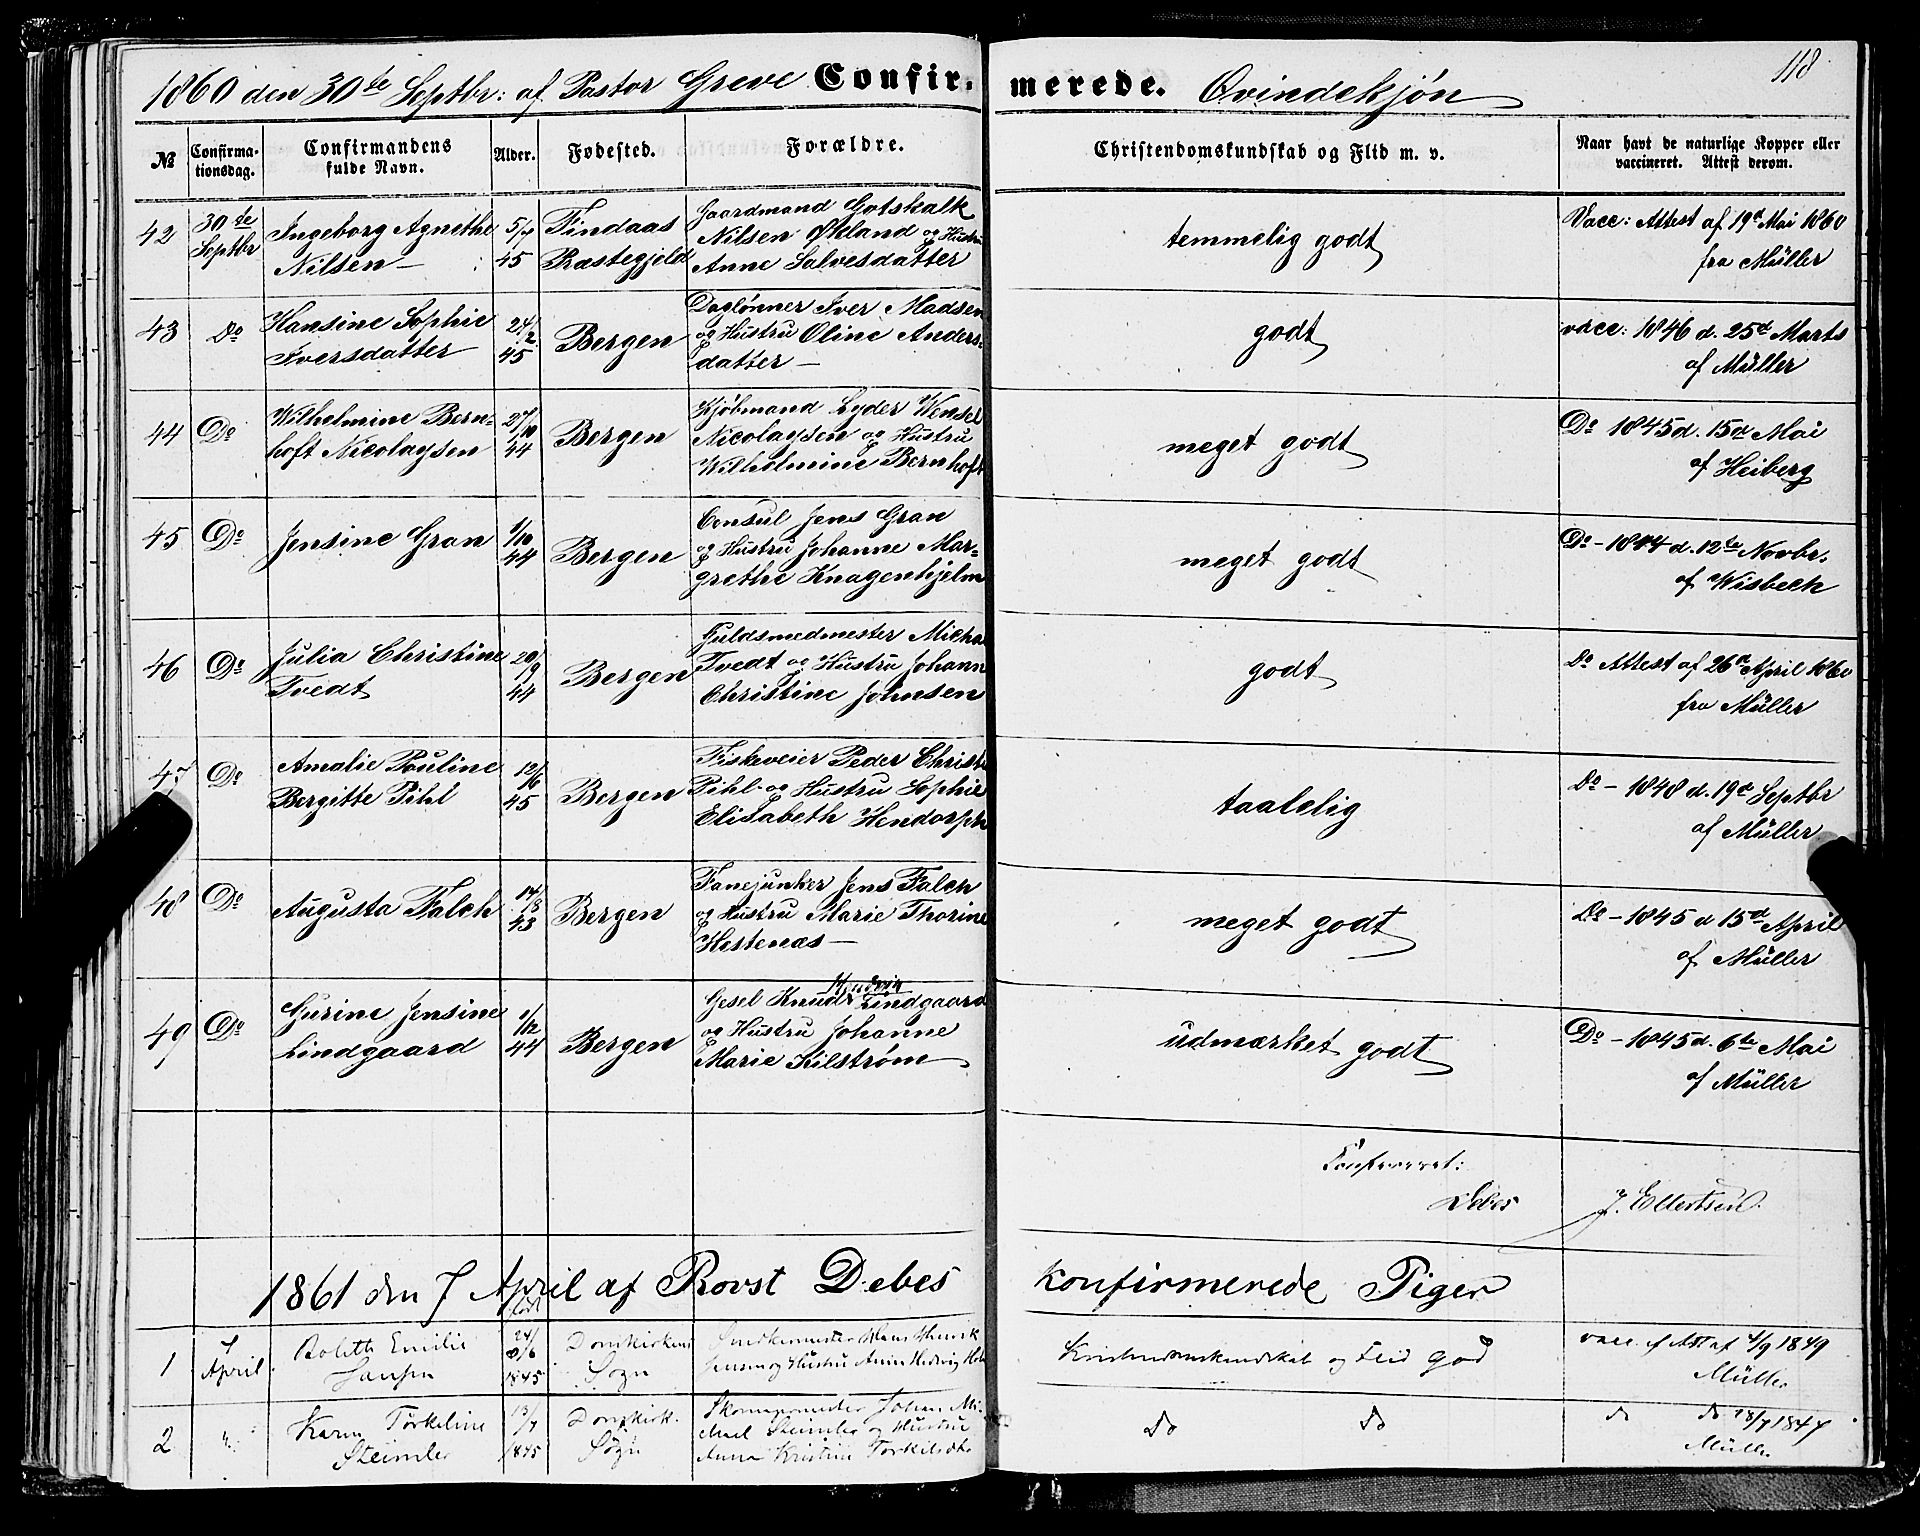 118
1860 den 30te Septbr: af Pastor Greve Confir-merede. Qvindekjøn
№
Confirma-
tionsdag.
Confirmandens
fulde Navn.
Alder.
Fødested.
Forældre.
Christendomskundskab og Flid m. v.
Naar havt de naturlige Kopper eller
vaccineret. Attest derom.
42
30te
Septbr
Ingeborg Agnethe
Nilsen
5/7
45
Findaas
Præstegjeld
Gaardmand Gotskalk
Nilsen Økland og Hustru
Anne Salvesdatter
temmelig godt
Vacc: Attest af 19d Mai 1860
fra Müller
43
Do
Hansine Sophie
Iversdatter
24/2
45
Bergen
Daglønner Iver Madsen
og Hustru Oline Anders-
datter
godt
vacc: 1846 d. 25d Marts
af Müller
44
Do
Wilhelmine Bern-
hoft Nicolaysen
27/10
44
Bergen
Kjøbmand Lyder Wensel
Nicolaysen og Hustru
Wilhelmine Bernhoft
meget godt
Do 1845 d. 15d Mai
af Heiberg
45
Do
Jensine Gran
1/10
44
Bergen
Consul Jens Gran
og Hustru Johanne Mar-
grethe Knagenhjelm
meget godt
Do - 1844 d. 12te Novbr.
af Wisbech
46
Do
Julia Christine
Tvedt
20/9
44
Bergen
Guldsmedmester Micha
Tvedt og Hustru Johann
Christine Johnsen
godt
Do Attest af 26d April 1860
fra Müller
47
Do
Amalie Pauline
Bergitte Pihl
12/6
45
Bergen
Fiskeveier Peder Christi
Pihl og Hustru Sophie
Elisabeth Hendorph
taalelig
Do - 1848 d. 19d Septbr
af Müller
48
Do
Augusta Falch
14/8
43
Bergen
Fanejunker Jens Falch
og Hustru Marie Thorine
Hestenæs
meget godt
Do - 1845 d 15d April
af Müller
49
Do
Gurine Jensine
Lindgaard
1/12
44
Bergen
Gesel Knud Lindgaard
og Hustru Johanne
Marie Kilstrøm
udmærket godt
Do - 1845 d. 6te Mai
af Müller
Confereret:
Debes
J. Ellertsen
1861 den 7 April af Provst Debes Konfirmerede Piger
født
1
7
April
Bolette Emilie
Jansen
24/6
1845
Domkirkens
Sogn
Snedkermester Hans Henrik
Jensen og Hustru Anne Hedvig
Kristendomskundskab og Flid god
vacc. af Att af 4/9 1849
Müller
2
"
Karen Torkeline
Steimler
13/7
1845
Domkirk.
Sogn
Skomagermester Johan Mi-
chael Steimler og Hustru
Anna Kristine Torkilsdtr
Do Do
do do 18/7 1847
Müller